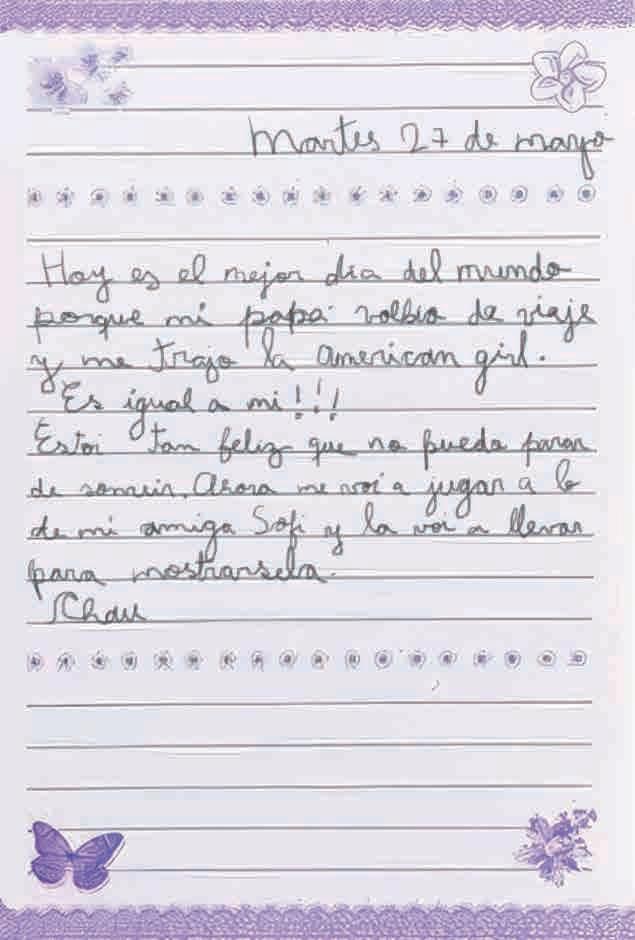 Martes 27 de mayo
Hoy es el mejor dia del mundo
porque mi papá volbio de viaje
y me trajo la american girl.
Es igual a mi!!!
Estoi tam feliz que no puedo parar
de sonreir. Ahora me voi a jugar a lo
de mi amiga Sofi y la voi a llevar
para mostrarsela.
Chau